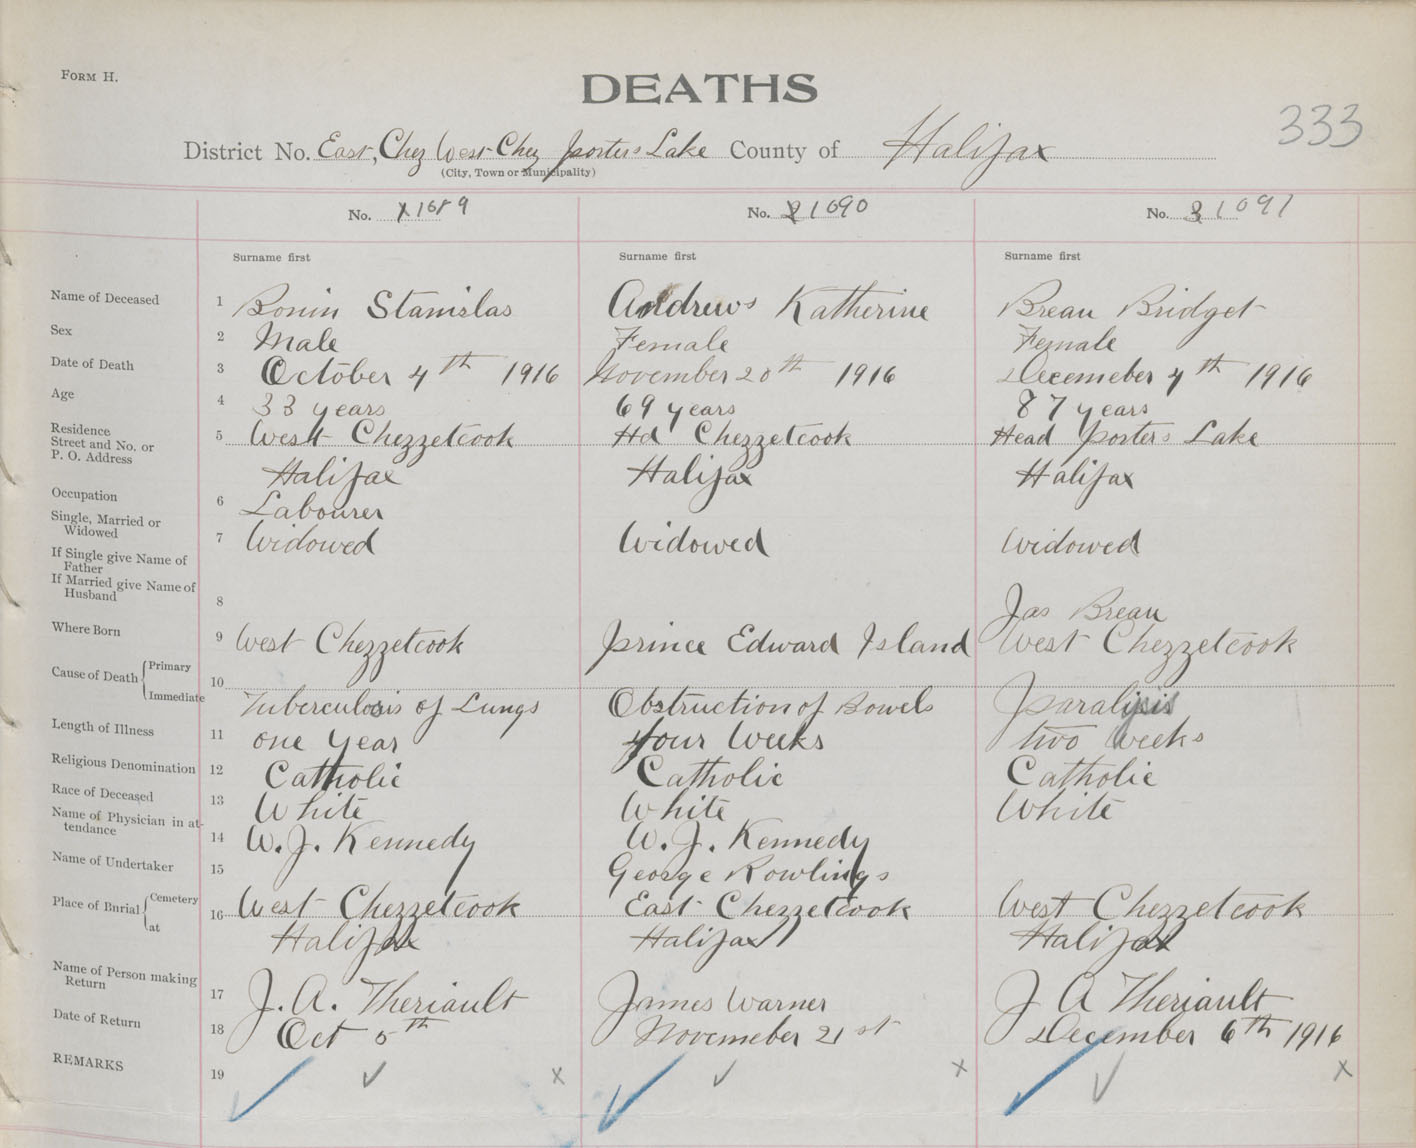 FORM H.
DEATHS
333
District No. East, Chez West Chez Porters Lake County of Halifax
(City, Town or Municipality)
No. 1 1089 No. 2 1090 No. 3 1091
Surname first Surname first Surname first
Name of Deceased 1 Bonin Stanislas Andrews Katherine Breau Bridget
Sex 2 Male Female Female
Date of Death 3 October 4th 1916 November 20th 1916 Decemeber 4th 1916
Age 4 33 years 69 years 87 years
Residence
Street and No. or 5 West Chezzetcook Hd Chezzetcook Head Porters Lake
P. O. Address
Halifax Halifax Halifax
Occupation 6 Labourer
Single, Married or
Widowed 7 Widowed Widowed Widowed
If Single give Name of
Father
If Married give Name of
Husband 8 Jas Breau
Where Born 9 West Chezzetcook Prince Edward Island West Chezzetcook
Cause of Death Primary
Immediate 10 Tuberculosis of Lungs Obstruction of Bowels Paralisis
Length of Illness 11 one year four Weeks two weeks
Religious Denomination 12 Catholic Catholic Catholic
Race of Deceased 13 White White White
Name of Physician in at-
tendance 14 W. J. Kennedy W. J. Kennedy
Name of Undertaker 15 George Rowlings
Place of Burial Cemetery
at 16 West Chezzetcook East Chezzetcook West Chezzetcook
Halifax Halifax Halifax
Name of Person making
Return 17 J. A. Theriault James Warner J A Theriault
Date of Return 18 Oct 5th Novemeber 21st December 6th 1916
REMARKS 19 x x x